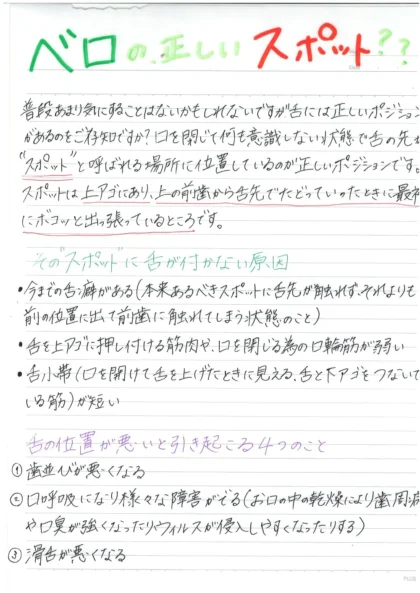 ベロの正しいスポット??
普段あまり気にすることはないかもしれないですが舌には正しいポジション
があるのをご存知ですか?口を閉じて何も意識しない状態で舌の先が
"スポット"と呼ばれる場所に位置しているのが正しいポジションです。
スポットは上アゴにあり、上の前歯から舌先でたどっていったときに最初
にボコッと出っ張っているところです。
その"スポット"に舌が付かない原因
・今までの舌癖がある(本来あるべきスポットに舌先が触れれず、それよりも
前の位置に出て前歯に触れてしまう状態のこと)
・舌を上アゴに押し付ける筋肉や、口を閉じる為の口輪筋が弱い
・舌小帯(口を開けて舌を上げたときに見える、舌と下アゴをつないで
いる筋)が短い
舌の位置が悪いと引き起こる4つのこと
①歯並びが悪くなる
②口呼吸になり様々な障害がでる(お口の中の乾燥により歯周病
や口臭が強くなったりウィルスが侵入しやすくなったりする)
③滑舌が悪くなる